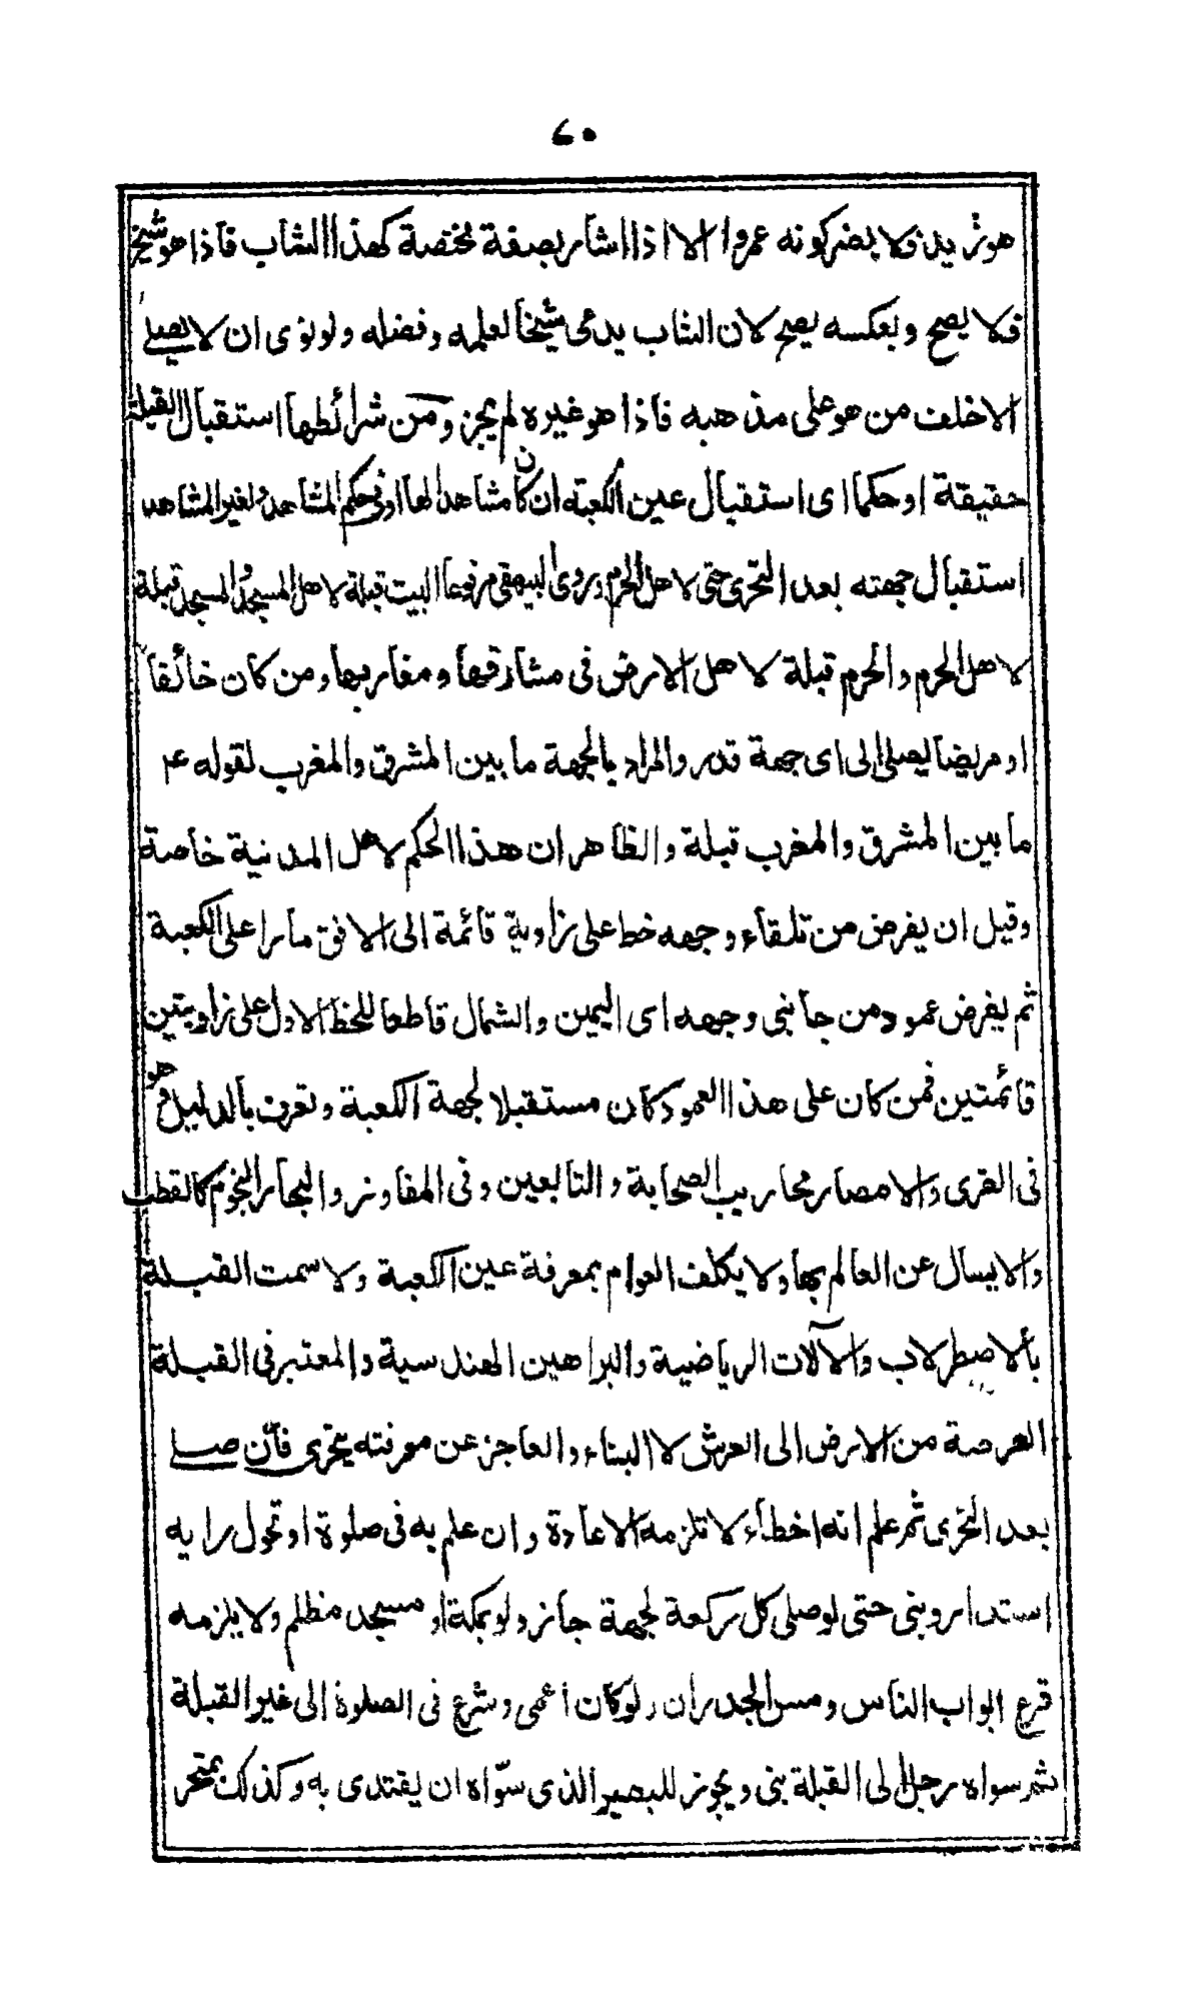 ٤٠
هو زيد فلا يضر كونه عمروا الا اذا اشار بصفة مختصة كهذا الشاب فاذا هو شيخ
فلا يصح وبعكسه يصح لان الشاب يدعى شيخا لعلمه وفضله ولو نوى ان لا يصلى
الا خلف من هو على مذهبه فاذا هو غيره لم يجز ومن شرائطها استقبال القبلة
حقيقة او حكما اى استقبال عين الكعبة ان كان مشاهدا لها او فى حكم المشاهد ولغير المشاهد
استقبال جهته بعد التحرى حتى لاهل الحرم وروى البيهقى مرفوعا البيت قبلة لاهل المسجد والمسجد قبلة
لاهل الحرم والحرم قبلة لاهل الارض فى مشارقها ومغاربها ومن كان خائفا
او مريضا يصلى الى اى جهة قدر والمراد بالجهة ما بين المشرق والمغرب لقوله ع
ما بين المشرق والمغرب قبلة والظاهر ان هذا الحكم لاهل المدنية خاصة
وقيل ان يفرض من تلقاء وجهه خط على زاوية قائمة الى الافق مارا على الكعبة
ثم يفرض عمود من جانبى وجهه اى اليمين والشمال قاطعا للخط الاول على زاويتين
قائمتين فمن كان على هذا العمود كان مستقبلا لجهة الكعبة وتعرف بالدليل وهو
فى القرى والامصار محاريب الصحابة والتابعين وفى المفاوز والبحار النجوم كالقطب
والا يسال عن العالم بها ولا يكلف العوام بمعرفة عين الكعبة ولا سمت القبلة
بالاصطرلاب والآلات الرياضية والبراهين الهندسية والمعتبر فى القبلة
العرصة من الارض الى العرش لا البناء والعاجز عن معرفته يتحرى فان صلى
بعد التحرى ثم علم انه اخطاء لا تلزمه الاعادة وان علم به فى صلوة او تحول رايه
استدار وبنى حتى لو صلى كل ركعة لجهة جاز ولو بمكة او مسجد مظلم ولا يلزمه
قرع ابواب الناس ومس الجدران ولو كان اعمى وشرع فى الصلوة الى غير القبلة
ثم سواه رجل الى القبلة بنى ويجوز للبصير الذى سوّاه ان يقتدى به وكذلك بمتحر